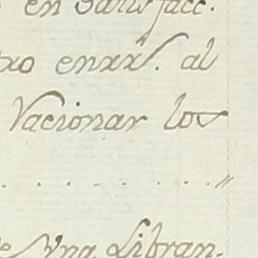 en Satisfacc.
enrrl. al
Vacionar los
Vna Libran-